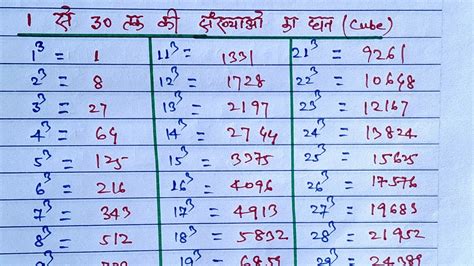 1 से 30 तक की संख्याओ का घन (Cube)
1³ = 1 11³ = 1331 21³ = 9261
2³ = 8 12³ = 1728 22³ = 10648
3³ = 27 13³ = 2197 23³ = 12167
4³ = 64 14³ = 2744 24³ = 13824
5³ = 125 15³ = 3375 25³ = 15625
6³ = 216 16³ = 4096 26³ = 17576
7³ = 343 17³ = 4913 27³ = 19683
8³ = 512 18³ = 5832 28³ = 21952
19³ = 6859 29³ = 24389